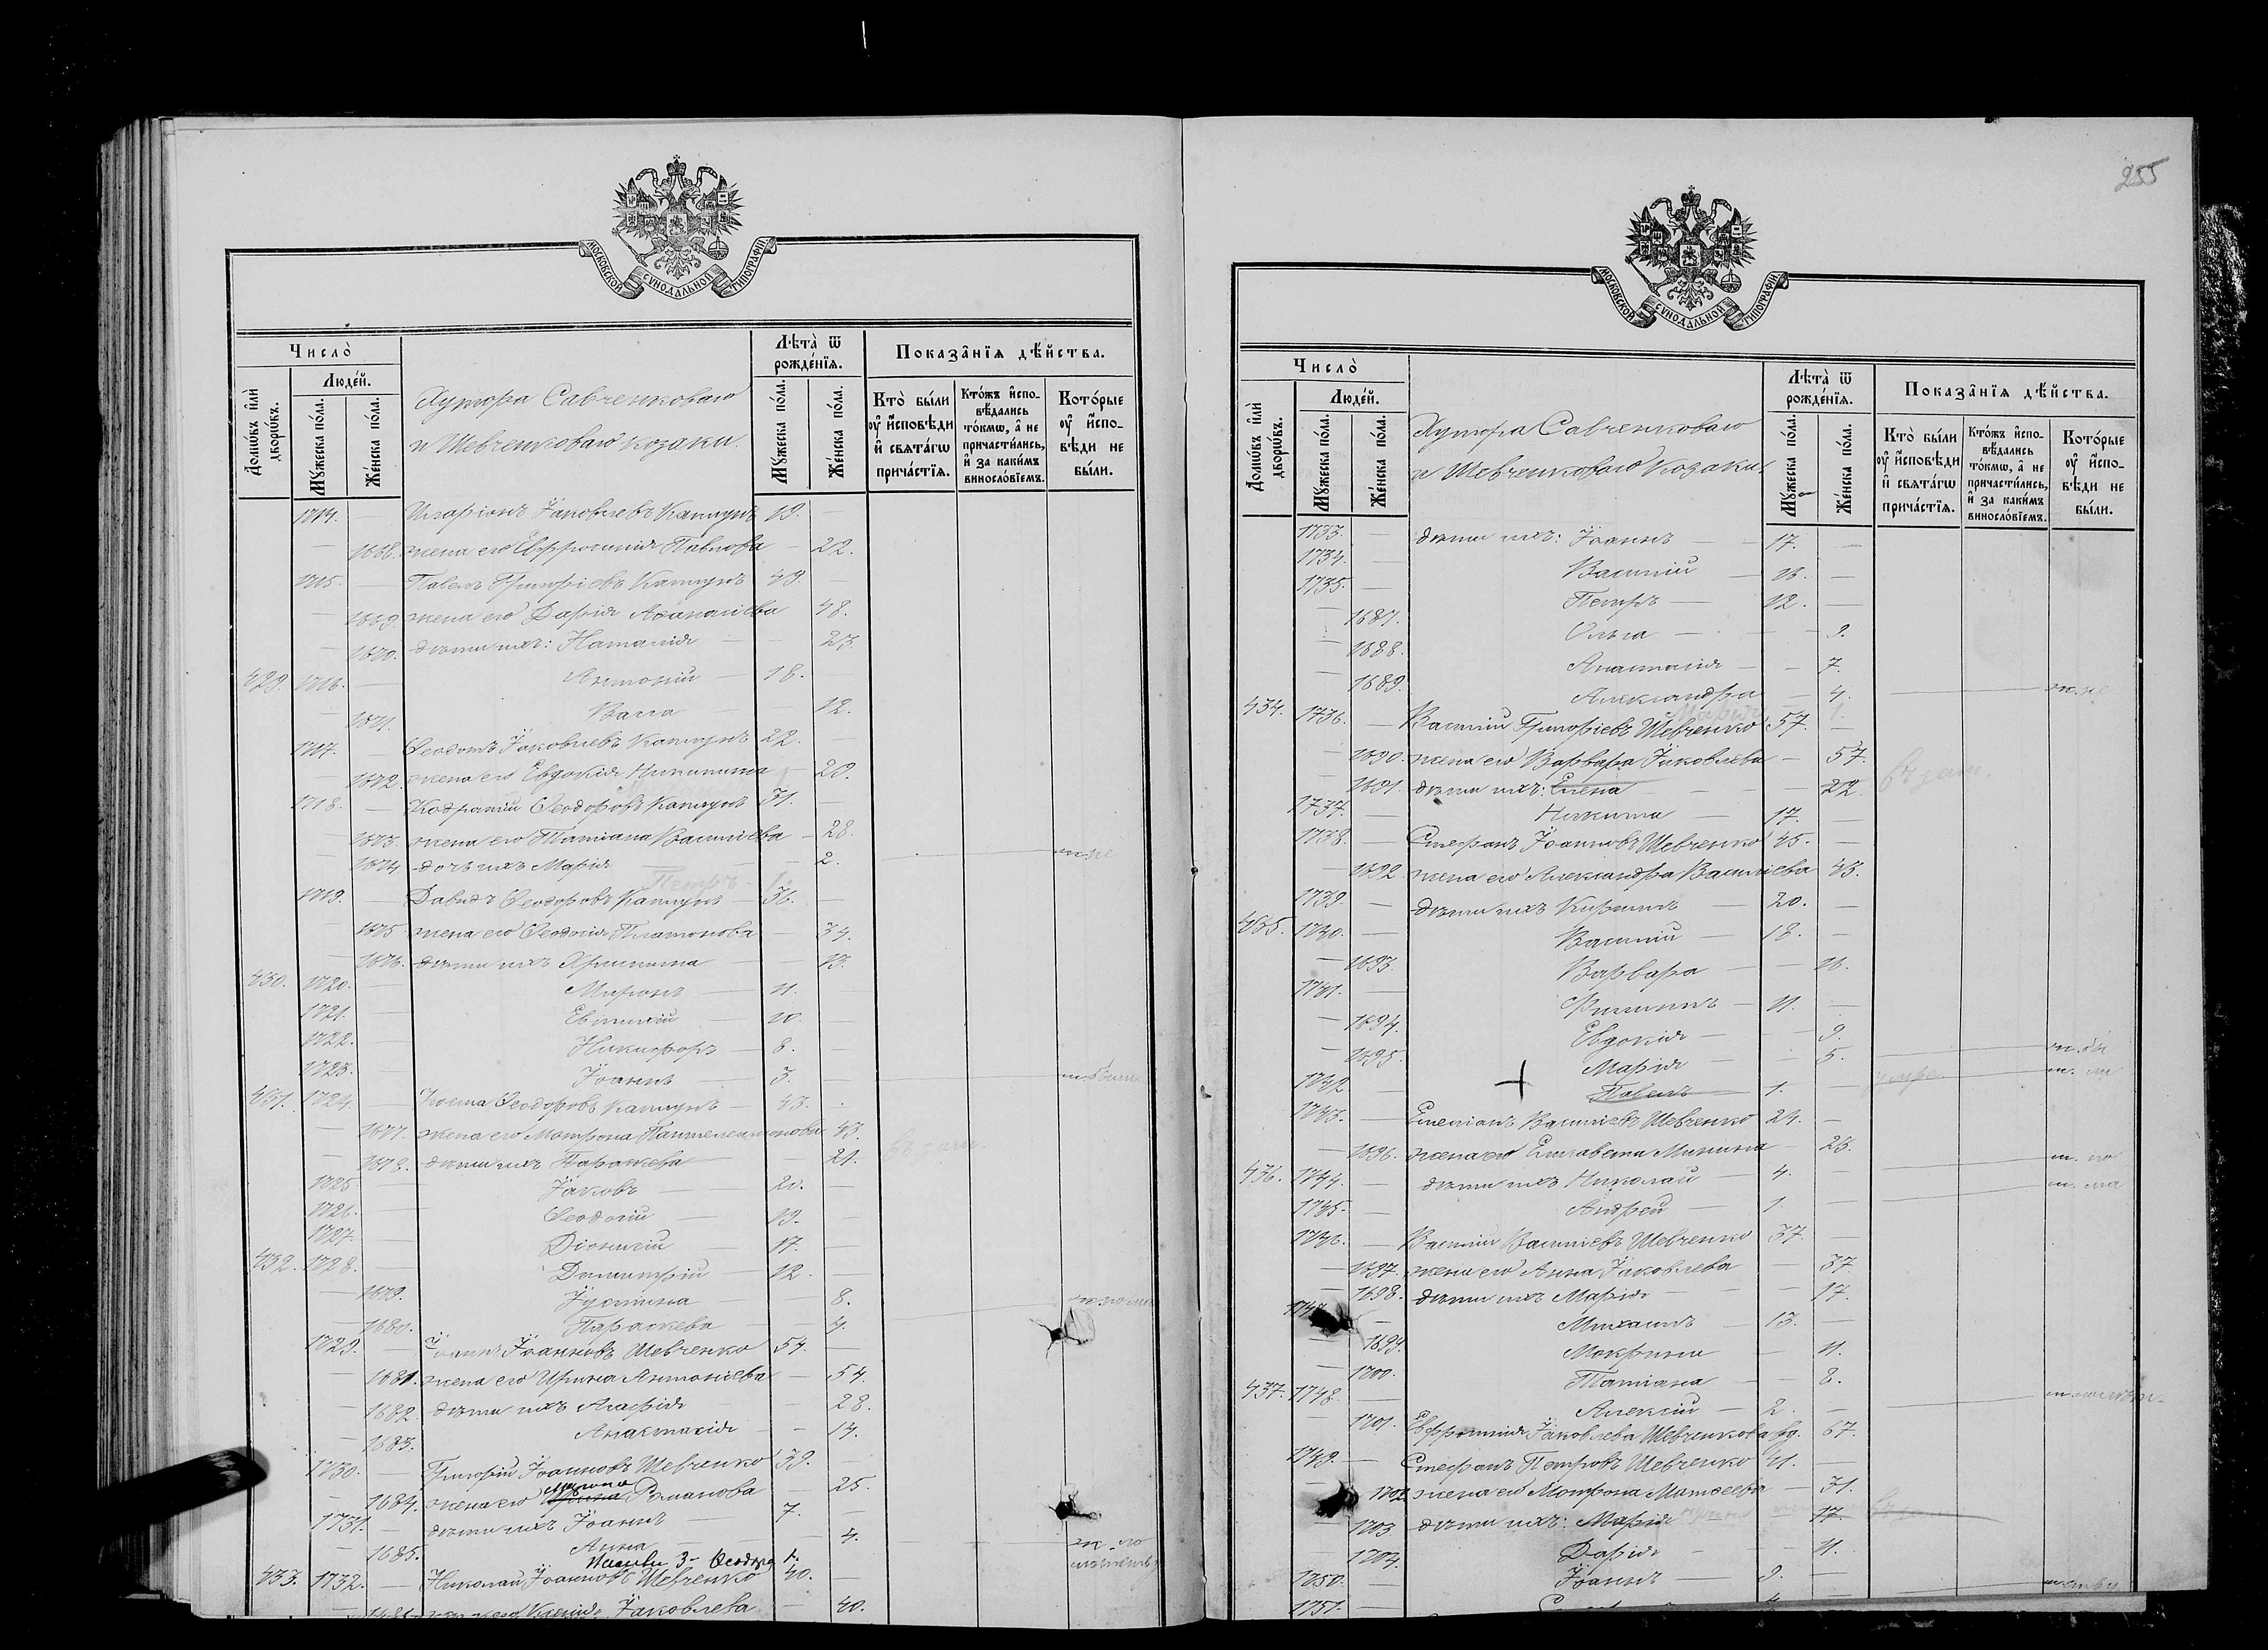 МОСКОВСКОЙ СУНОДАЛЬНОЙ ТИПОГРАФІИ
Число̀
Людéй.
Домѡ́въ и҆лѝ дворѡ́въ.
Мꙋ́жеска по́ла.
Же́нска по́ла.
Хутора Савченковаго
и Шевченковаго козаки.
Лѣта̀ ѿ рожде́нїѧ.
Мꙋ́жеска по́ла.
Же́нска по́ла.
Показа̑нїѧ дѣ́йства.
Кто̀ бы́ли ᲂу҆ и҆сповѣ́ди и҆ свѧта́гѡ прича́стїѧ.
Кто́жъ и҆сповѣ́дались то́кмѡ, а҆ не причасти́лись, и҆ за каки́мъ винословїемъ.
Кото́рые ᲂу҆ и҆сповѣ́ди не бы́ли.
1714. Иларіонъ Іаковлевъ Каплунъ 19.
1668. жена его Евфросинія Павлова 22.
1715. Павелъ Григоріевъ Каплунъ 49.
1669. жена его Дарія Аѳанасіева 48.
1670. дѣти ихъ: Наталія 23.
429. 1716. Антоній 18.
1671. Васса 12.
1717. Ѳеодотъ Іаковлевъ Каплунъ 22.
1672. жена его Евдокія Никитина 20.
1718. Кодратій Ѳеодоровъ Каплунъ 31.
1673. жена его Татіана Василіева 28.
1674 дочь ихъ Марія 2.
Петръ 1.
1719. Давидъ Ѳеодоровъ Каплунъ 36.
1675 жена его Ѳеодосія Платонова 34.
1676. дѣти ихъ Христина 13.
430. 1720. Миронъ 11.
1721. Евтихій 10.
1722. Никифоръ 8.
1723. Іоаннъ 3.
431. 1724. Косма Ѳеодоровъ Каплунъ 43.
1677. жена его Матрона Пантелеимонова 43.
1678. дѣти ихъ Параскева 21.
1725 Іаковъ 20.
1726. Ѳеодосій 19.
1727. Діонисій 17.
432. 1728. Димитрій 12.
1679. Іустина 8.
1680. Параскева 4.
1729. Іоаннъ Іоанновъ Шевченко 54.
1681. жена его Ирина Антоніева 54.
1682. дѣти ихъ Агафія 28.
1683. Анастасія 14.
1730. Григорій Іоанновъ Шевченко 39.
1684. жена его Романова 25.
1731. дѣти ихъ Іоаннъ 7.
1685. Анна 4.
433. 1732. Николай Іоанновъ Шевченко 40.
жена его Ксенія Іаковлева 40.
255
МОСКОВСКОЙ СУНОДАЛЬНОЙ ТИПОГРАФІИ
Число̀
Людéй.
Домѡ́въ и҆лѝ дворѡ́въ.
Мꙋ́жеска по́ла.
Же́нска по́ла.
Хутора Савченковаго
и Шевченковаго козаки.
Лѣта̀ ѿ рожде́нїѧ.
Мꙋ́жеска по́ла.
Же́нска по́ла.
Показа̑нїѧ дѣ́йства.
Кто̀ бы́ли ᲂу҆ и҆сповѣ́ди и҆ свѧта́гѡ прича́стїѧ.
Кто́жъ и҆сповѣ́дались то́кмѡ, а҆ не причасти́лись, и҆ за каки́мъ винословїемъ.
Кото́рые ᲂу҆ и҆сповѣ́ди не бы́ли.
1733. дѣти ихъ: Іоаннъ 17.
1734. Василій 16.
1735. Петръ 12.
1687. Ольга 9.
1688. Анастасія 7.
1689. Александра 4.
Марія 1.
434. 1736. Василій Григоріевъ Шевченко 57.
1690. жена его Варвара Іаковлева 57.
1691. дѣти ихъ: Елена 22.
1737. Никита 17.
1738. Стефанъ Іоанновъ Шевченко 45.
1692. жена его Александра Василіева 43.
1739. дѣти ихъ Кириллъ 20.
435. 1740. Василій 18.
1693. Варвара 16.
1741. Филиппъ 11.
1694. Евдокія 9.
1695. Марія 5.
1742 Павелъ 1.
1743. Емеліанъ Василіевъ Шевченко 24.
1696. жена его Елисавета Минина 26.
436. 1744. дѣти ихъ Николай 4.
1745. Андрей 1.
1746. Василій Василіевъ Шевченко 37.
1697. жена его Анна Іаковлева 37
1698. дѣти ихъ Марія 17.
1747 Михаилъ 13.
1699. Макрина 11.
1700. Татіана 8.
437. 1748. Алексій 2.
1701. Евфросинія Іаковлева Шевченкова вд. 67.
1749. Стефанъ Петровъ Шевченко 41.
1702 жена его Матрона Матѳеева 31.
1703 дѣти ихъ: Марія 17.
1704. Дарія 11.
1750. Іоаннъ 9.
1751.